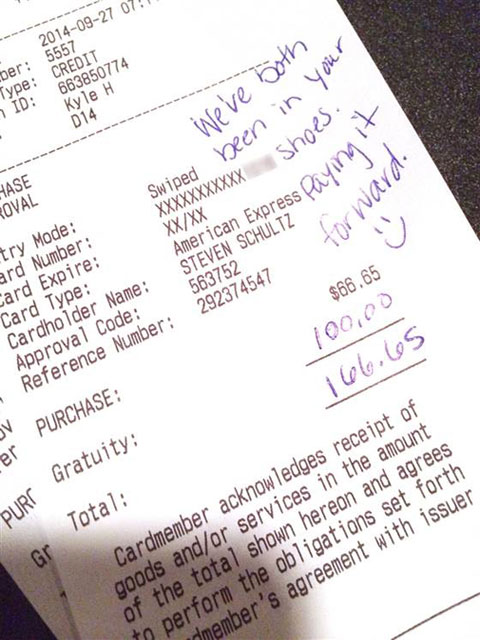 2014-09-27 07:1
ber: 5557
Type: CREDIT
n ID: 663850774
Kyle H
D14
HASE
ROVAL
We've both
been in your
shoes.
Paying it
forward.
try Mode: Swiped
ard Number: XXXXXXXXXXX
Card Expire: XX/XX
Card Type: American Express
Cardholder Name: STEVEN SCHULTZ
Approval Code: 563752
Reference Number: 292374547
PURCHASE: $66.65
Gratuity: 100.00
Total: 166.65
Cardmember acknowledges receipt of
goods and/or services in the amount
of the total shown hereon and agrees
to perform the obligations set forth
dmember's agreement with issuer
ov
er
PURC
Gr